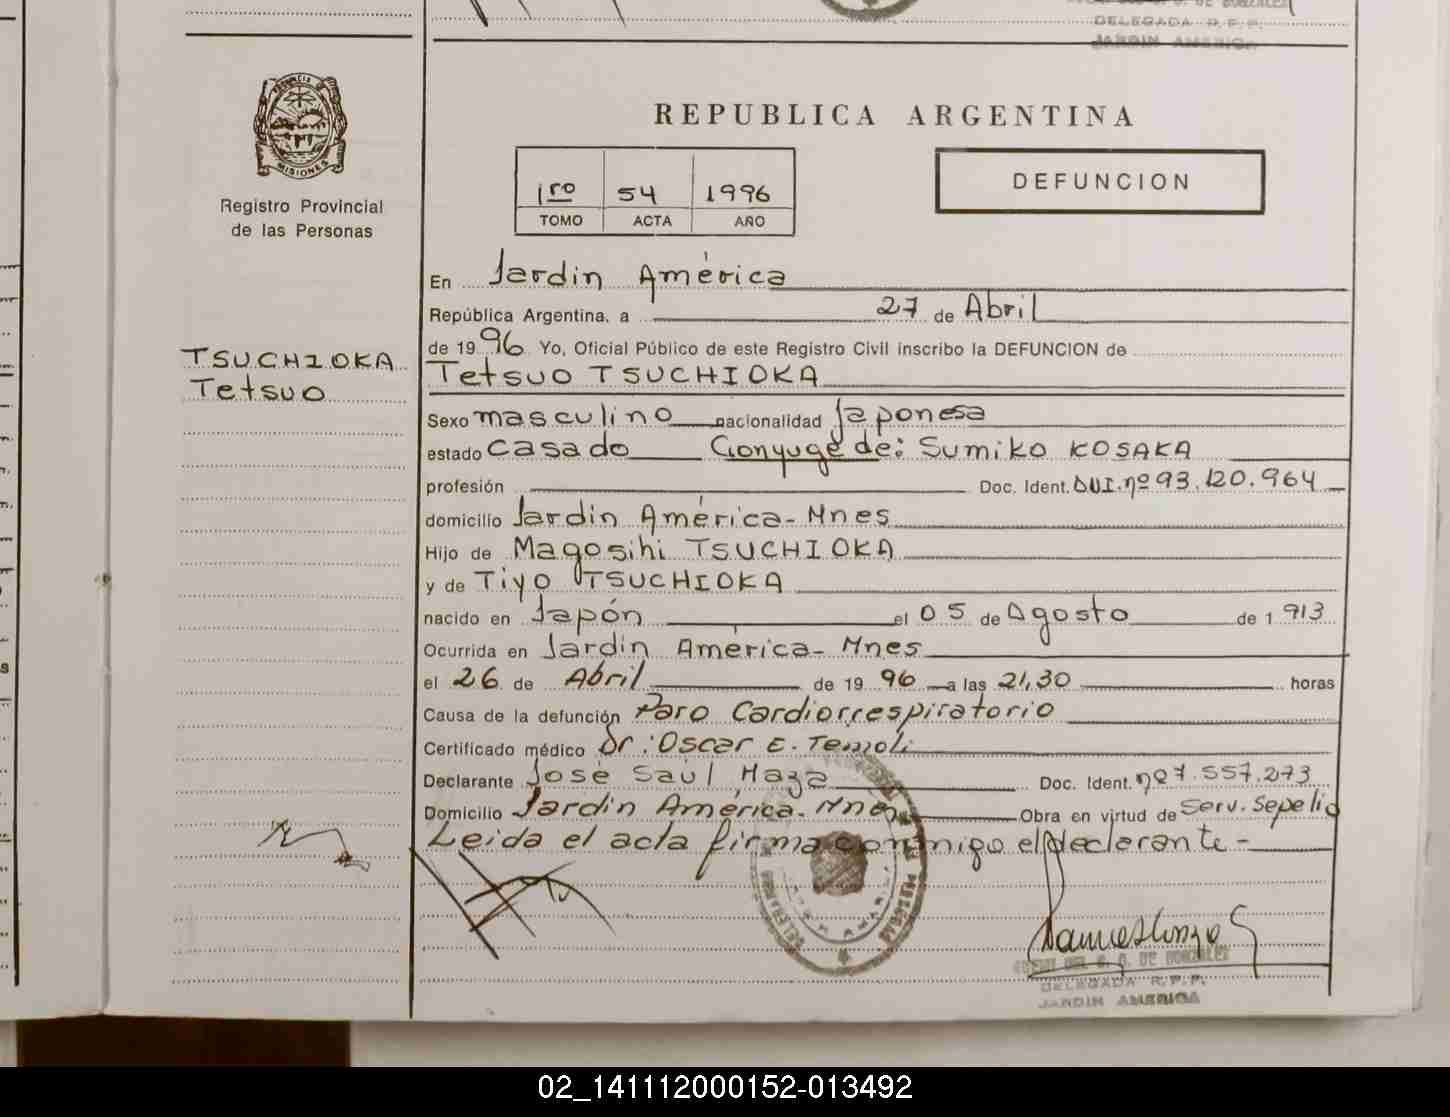 DELEGADA R.P.P.
JARDIN AMERICA
PROVINCIA DE
MISIONES
Registro Provincial
de las Personas
TSUCHIOKA
Tetsuo
REPUBLICA ARGENTINA
1ro 54 1996
TOMO ACTA AÑO
DEFUNCION
En Jardin América
República Argentina, a 27 de Abril
de 1996 Yo, Oficial Público de este Registro Civil inscribo la DEFUNCION de
Tetsuo TSUCHIOKA
Sexo masculino nacionalidad Japonesa
estado casado Conyuge de: Sumiko KOSAKA
profesión Doc. Ident. DNI. nº 93.120.964
domicilio Jardin América - Mnes
Hijo de Magosihi TSUCHIOKA
y de Tiyo TSUCHIOKA
nacido en Japón el 05 de Agosto de 1 913
Ocurrida en Jardin América - Mnes
el 26 de Abril de 1996 a las 21,30 horas
Causa de la defunción Paro Cardiorrespiratorio
Certificado médico Dr: Oscar E.
Declarante José Saúl Maza Doc. Ident. nº 7.557.273
Domicilio Jardin América - Mnes Obra en virtud de Serv. Sepelio
Leida el acta firma conmigo el declarante -
DE GONZALEZ
DELEGADA R.P.P.
JARDIN AMERICA
02_141112000152-013492